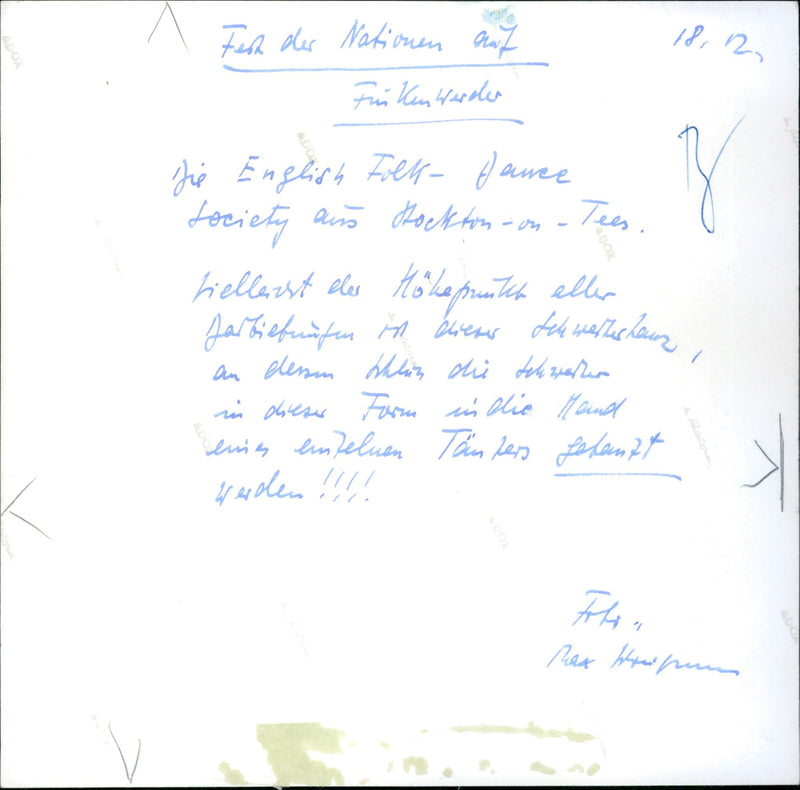 Fest der Nationen auf
18. 12.
Finkenwerder
Die English Folk- Dance
Society aus Stockton-on-Tees.
Vielleicht der Höhepunkt aller
Darbietungen ist dieser Schwertertanz,
an dessen Schluß die Schwerter
in dieser Form in die Hand
eines einzelnen Tänzers getanzt
werden!!!!
Foto:
Max
ADOX
ADOX
ADOX
ADOX
ADOX